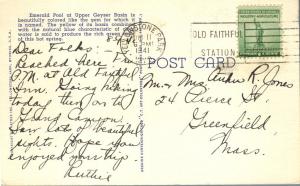 Emerald Pool at Upper Geyser Basin is
beautifully colored like the gem for which it
is named. The yellow of the basin combining
with the natural blue characteristic of deep
water is said to produce the rich green color
of this pool.
Dear Folks:-
Reached here
P.M. at Old Faithful
Inn. Going hiking
today then on to
Grand Canyon.
Saw lots of beautiful
sights. Hope you
enjoyed your trip.
Ruthie
1941
OLD FAITHFUL
STATION
INDUSTRY AGRICULTURE
POST CARD
Mr. & Mrs. Arthur R. Jones
24 Pierce St
Greenfield
Mass.